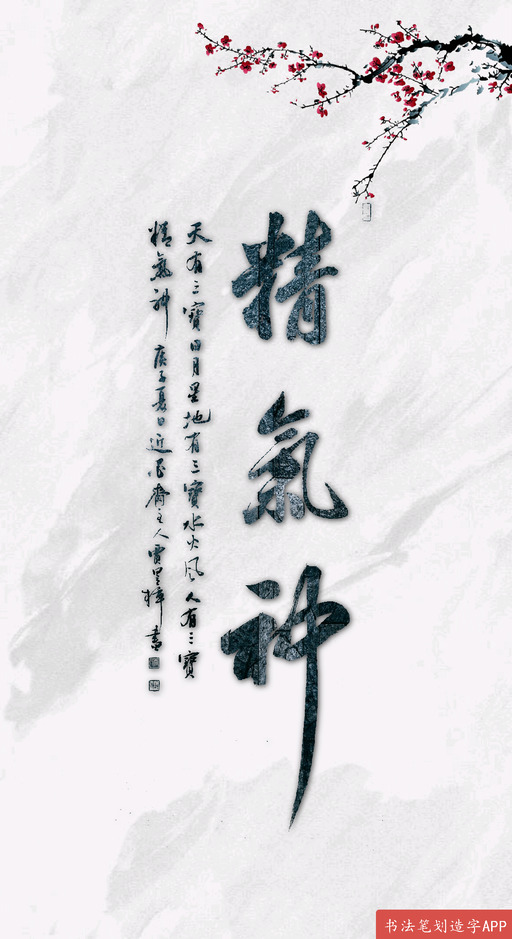 精氣神
天有三寶日月星地有三寶水火风人有三寶
精氣神 庚子夏日近墨齋主人賈墨樟書
书法笔划造字APP